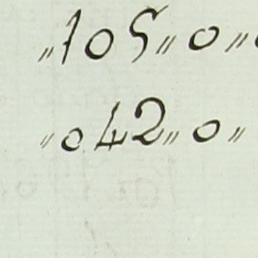 "105" 0 "
"042" 0 "